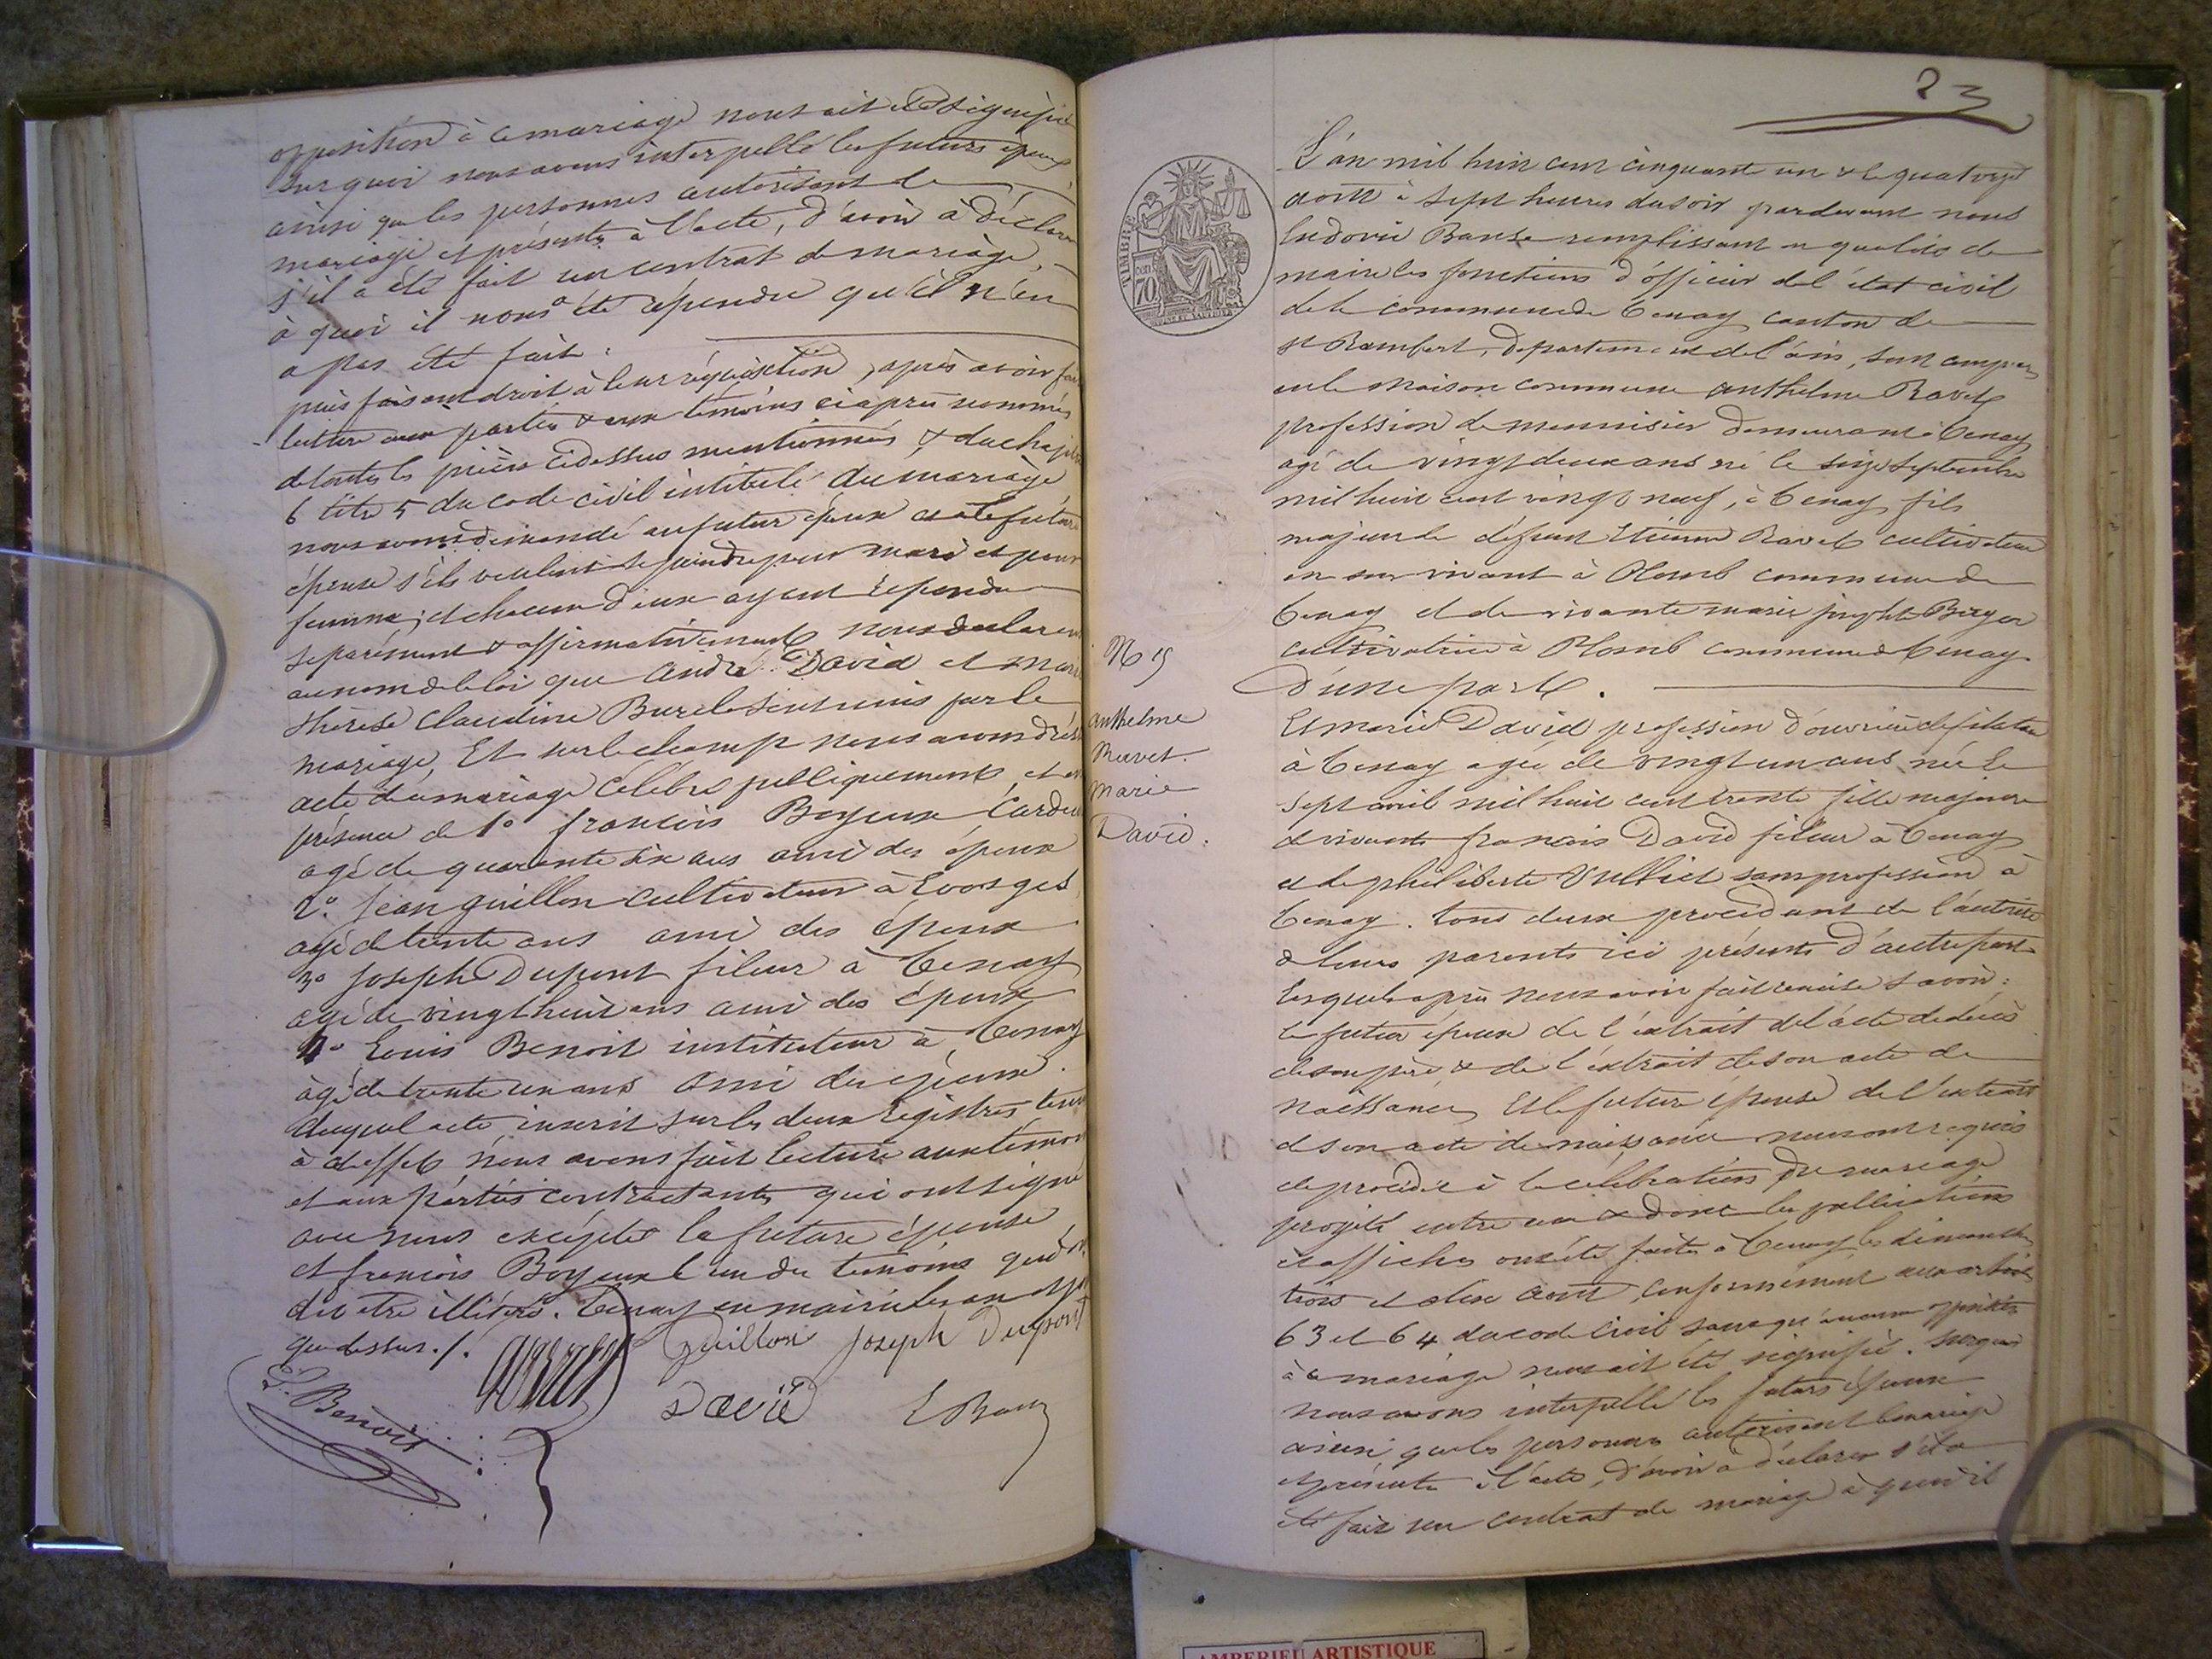 opposition à ce mariage nous ait été signifié
sur quoi nous avons interpellé les futurs époux,
ainsi que les personnes autorisant le
mariage et présentes à l'acte, d'avoir à déclarer
s'il a été fait un contrat de mariage,
à quoi il nous a été répondu qu'il n'en
a pas été fait.
puis faisant droit à leur réquisition, après avoir fait
lecture aux parties & aux témoins ciaprès nommés
de toutes les pièces cidessus mentionnées, & du chapitre
6 titre 5 du code civil intitulé du mariage
nous avons demandé au futur époux et à la future
épouse s'ils veulent se prendre pour mari et pour
femme; et chacun d'eux ayant répondu
séparément & affirmativement nous déclarons
au nom de la loi que André David et Marie
thérèse Claudine Buret sont unis par le
mariage, Et sur le champ nous avons dressé
acte du mariage célébré publiquement, et en
présence de 1° françois Boyeux Cardeur
agé de quarante six ans ami des époux
2° Jean guillon cultivateur à Evosges
agé de trente ans ami des époux
3° Joseph Dupont fileur à Tenay
agé de vingt huit ans ami des époux
4° Louis Benoit instituteur à Tenay
àgé de trente un ans ami des époux.
duquel acte inscrit sur les deux registres tenus
à cet effet nous avons fait lecture aux témoins
et aux parties contractantes qui ont signé
avec nous excépté la future épouse
et françois Boyeux l'un des témoins qui
dit etre illétéré. Tenay en mairie les an
que dessus./.
Guillon Joseph Dupont
L. Benoit
David
23
TIMBRE
70
L'an mil huit cent cinquante un & le quatorze
août à sept heures du soir pardevant nous
Ludovic Banse remplissant en qualité de
maire les fonctions d'officier de l'état civil
de la commune de Tenay canton de
st Rambert, département de l'ain, sont comparus
en la maison commune anthelme Ravet
profession de menuisier demeurant à Tenay
agé de vingt deux ans né le seize septembre
mil huit cent vingt neuf, à Tenay fils
majeur de défunt Etienne Ravet cultivateur
en son vivant à Plomb commune de
Tenay et de vivante marie josephte
cultivatrice à Plomb commune de Tenay
d'une part.
N 19
anthelme
Ravet.
Marie
David.
Et marie David profession d'ouvrière de filature
à Tenay agée de vingt un ans née le
sept avril mil huit cent trente fille majeure
de vivants françois David fileur à Tenay
et de philiberte Vulliet sans profession à
Tenay. tous deux procédant de l'autorité
de leurs parents ici présents d'autre part
Lesquels après nous avoir fait remise savoir:
le futur époux de l'extrait de l'acte de décès
de son père & de l'extrait de son acte de
naissance, Et la future épouse de l'extrait
de son acte de naissance nous ont requis
de procéder à la célébration du mariage
projeté entre eux & dont les publications
et affiches ont été faites à Tenay les dimanches
trois et dix août, conformément aux articles
63 et 64 du code civil sans qu'aucune opposition
à ce mariage nous ait été signifié. sur quoi
nous avons interpellé les futurs époux
ainsi que les personnes autorisant le mariage
et présentes à l'acte, d'avoir à déclarer s'il a
été fait un contrat de mariage à quoi il
AMBERIEU ARTISTIQUE